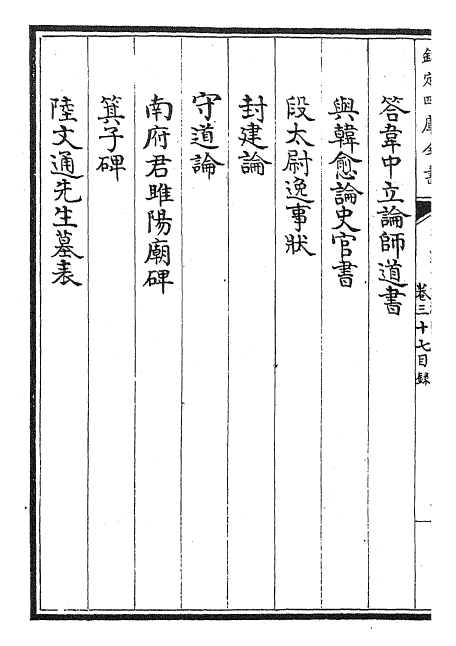 欽定四庫全書
卷三十七目錄
答韋中立論師道書
與韓愈論史官書
段太尉逸事狀
封建論
守道論
南府君睢陽廟碑
箕子碑
陸文通先生墓表